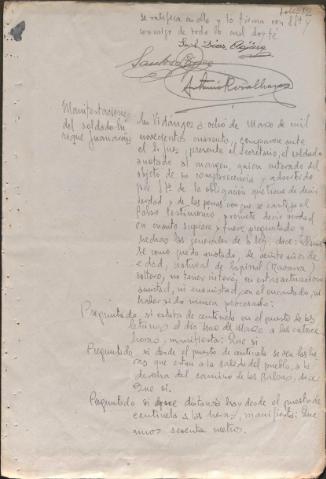 se ratifica a ello y lo firma con SSª y
conmigo de todo lo cual doy fe
Manifestaciones
del soldado En
rique
En Vidanges a ocho de Marzo de mil
novecientos cuarenta y comparece ante
el Sr Juez presente el Secretario, el soldado
anotado al margen, quien enterado del
objeto de su comparecencia y advertido
por SSª de la obligación que tiene de decir
verdad y de las penas con que se castiga el
falso testimonio, promete decir verdad
en cuanto supiere y fuere preguntado y
hechas las generales de la Ley, dice: llamar
se como queda anotado, de veinte años de
edad, natural de Espinal (Navarra)
soltero, no tener interés, ni
amistad, ni enemistad, con el encartado, ni
haber sido nunca procesado:
Preguntado si estaba de centinela en el puesto de las
el día tres de Marzo a las catorce
horas, manifiesta: Que si
Preguntado si desde el puesto de centinela se ven las
que estan a la salida del pueblo, a la
derecha del camino de las dice
Que si.
Preguntado si que distancia hay desde el puesto de
centinela a las manifiesta: Que
unos sesenta metros.